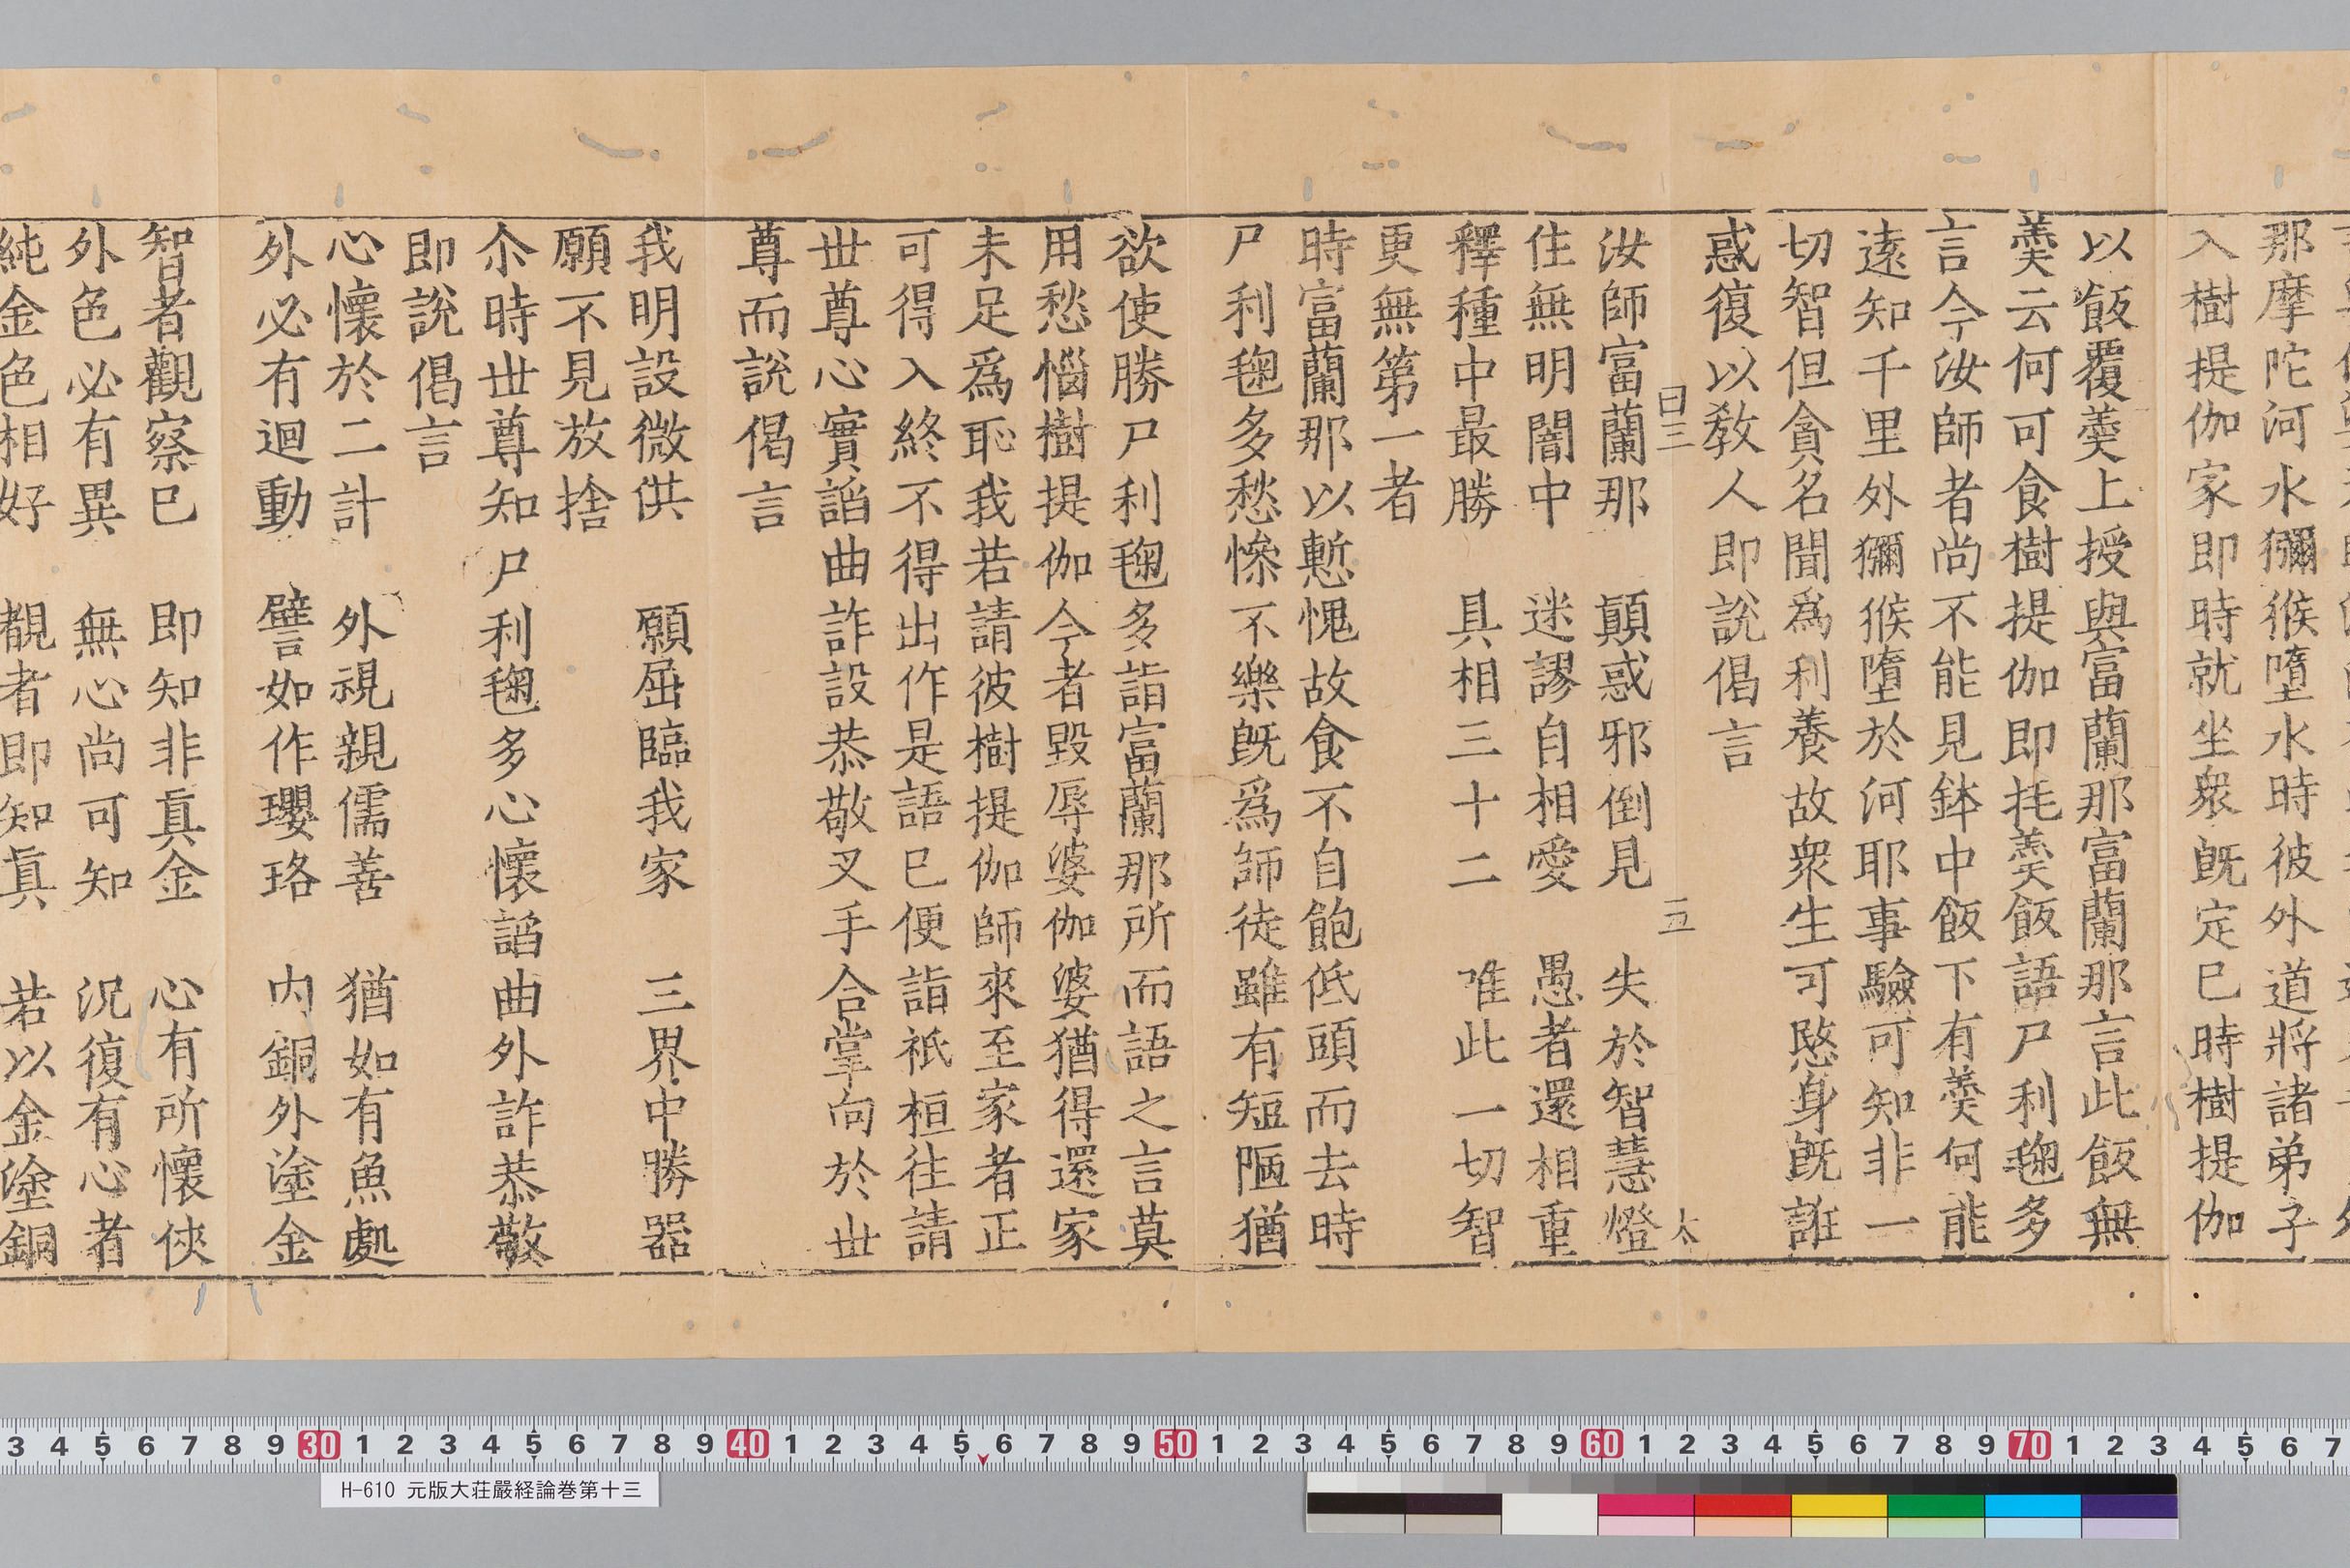 那摩陀河水獼猴墮水時彼外道將諸弟子
入樹提伽家即時就坐衆旣定巳時樹提伽
以飯覆羮上授與富蘭那富蘭那言此飯無
羮云何可食樹提伽即㧌羮飯語尸利毱多
言今汝師者尚不能見鉢中飯下有羮何能
遠知千里外獼猴墮於河耶事驗可知非一
切智但貪名聞爲利養故衆生可愍身旣誑
惑復以敎人即說偈言
曰三 五 太
汝師富蘭那 顚惑邪倒見 失於智慧燈
住無明闇中 迷謬自相愛 愚者還相重
釋種中最勝 具相三十二 唯此一切智
更無第一者
時富蘭那以慙愧故食不自飽低頭而去時
尸利毱多愁慘不樂旣爲師徒雖有短陋猶
欲使勝尸利毱多詣富蘭那所而語之言莫
用愁惱樹提伽今者毀辱婆伽婆猶得還家
未足爲恥我若請彼樹提伽師來至家者正
可得入終不得出作是語巳便詣祇桓往請
丗尊心實諂曲詐設恭敬叉手合掌向於丗
尊而說偈言
我明設微供 願屈臨我家 三界中勝器
願不見放捨
尒時丗尊知尸利毱多心懷諂曲外詐恭敬
即說偈言
心懷於二計 外視親儒善 猶如有魚處
外必有迴動 譬如作瓔珞 内銅外塗金
智者觀察巳 即知非真金 心有所懷俠
外色必有異 無心尚可知 況復有心者
純金色相好 覩者即知真 若以金塗銅
3 4 5 6 7 8 9 30 1 2 3 4 5 6 7 8 9 40 1 2 3 4 5 6 7 8 9 50 1 2 3 4 5 6 7 8 9 60 1 2 3 4 5 6 7 8 9 70 1 2 3 4 5 6 7
H-610 元版大荘嚴経論巻第十三